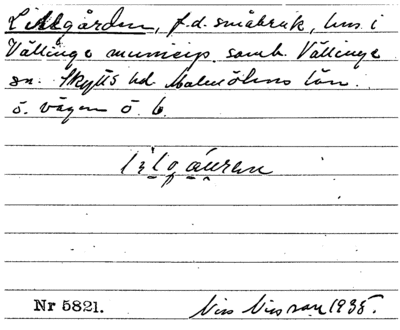 Lillgården, f.d. småbruk, hus i
Vällinge municip. samh. Vällinge
sn. Skytts hd Malmöhus län.
ö. vägen ö. 6.
Nr 5821. Nils Nilsson 1935.